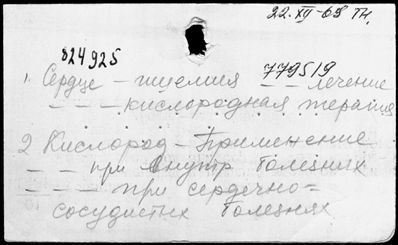 22.XII-65 Тн.
824925
779519
1. Сердце - ишемия - - лечение
- - - кислородная терапия
2 Кислород - Применение
- - при внутр болезнях
- - - при сердечно=
сосудистых болезнях